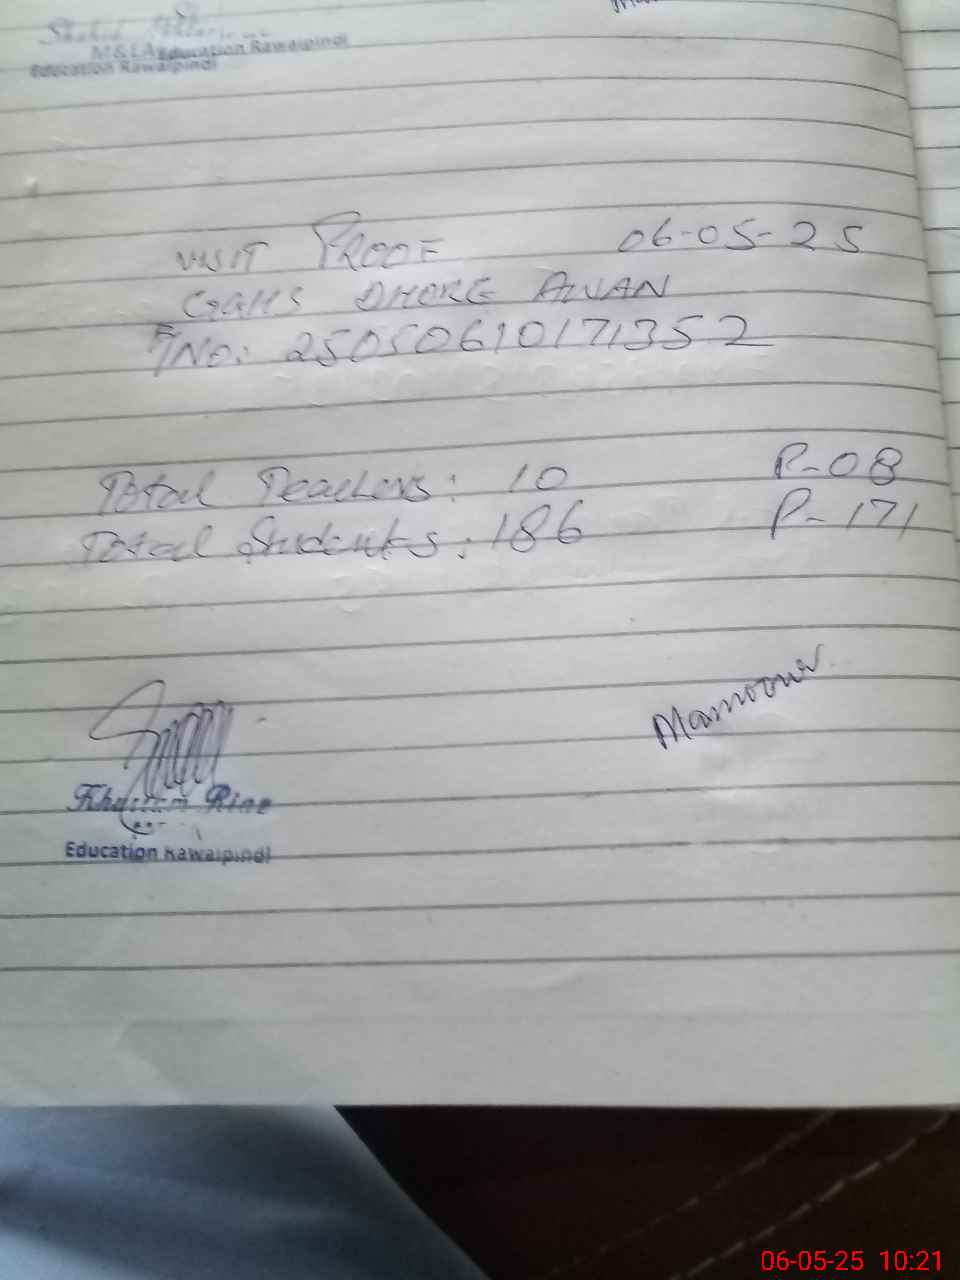 M&EA Education Rawalpindi
Education Rawalpindi
VISIT PROOF 06-05-25
GGHS DHOKE AWAN
NO: 25050610171352
Total Teachers: 10 P-08
Total Students: 186 P-171
Education Rawalpindi
06-05-25 10:21